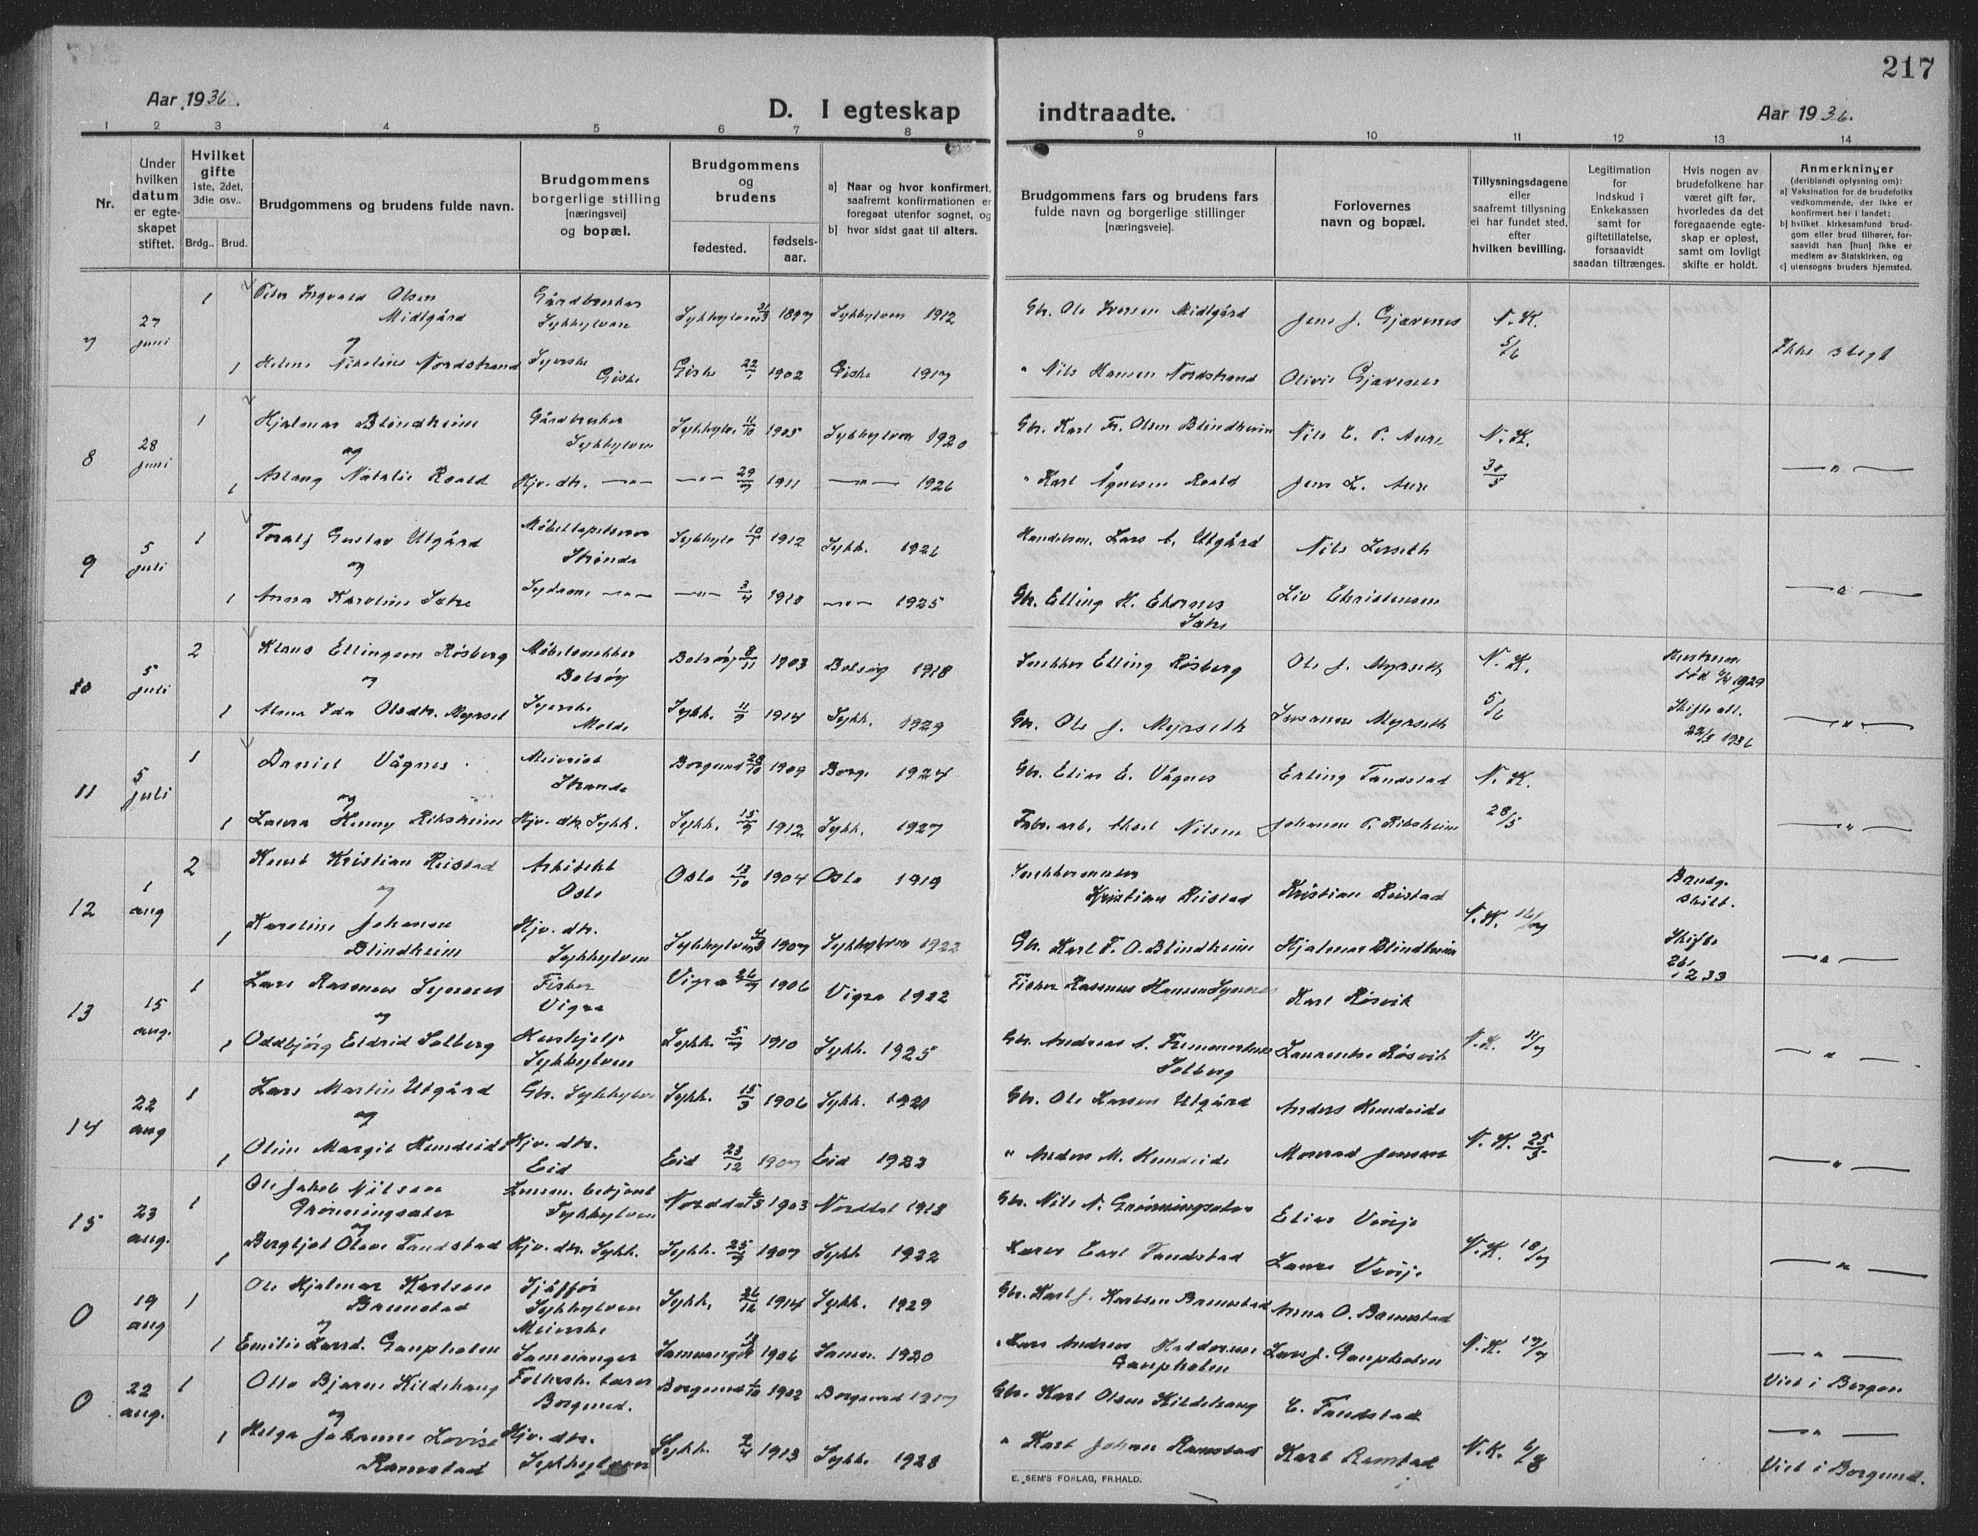 217
Aar 1936.
D. I egteskap indtraadte.
Aar 1936.
1 2 3 4 5 6 7 8 9 10 11 12 13 14
Nr.
Under hvilken datum er egte-skapet stiftet.
Hvilket gifte 1ste, 2det, 3die osv..
Brdg.. Brud.
Brudgommens og brudens fulde navn.
Brudgommens borgerlige stilling [næringsvei] og bopæl.
Brudgommens og brudens
fødested. fødsels-aar.
a] Naar og hvor konfirmert, saafremt konfirmationen er foregaat utenfor sognet, og
b] hvor sidst gaat til alters.
Brudgommens fars og brudens fars fulde navn og borgerlige stillinger [næringsveie].
Forlovernes navn og bopæl.
Tillysningsdagene eller saafremt tillysning ei har fundet sted, efter hvilken bevilling.
Legitimation for indskud i Enkekassen samt for giftetillatelse, forsaavidt saadan tiltrænges.
Hvis nogen av brudefolkene har været gift før, hvorledes da det foregaaende egte-skap er opløst, samt om lovligt skifte er holdt.
Anmerkninger (deriblandt oplysning om):
a] Vaksination for de brudefolks vedkommende, der ikke er konfirmert her i landet;
b] hvilket kirkesamfund brud-gom eller brud tilhører, for-saavidt han [hun] ikke er medlem av Statskirken, og
c] utensogns bruders hjemsted.
7 27 juni 1 Peter Ingvald Olsen Midtgård Gårdbruker Sykkylven Sykkylven 1897 Sykkylven 1912 Gbr. Ole Iversen Midtgård Jens J. Gjævenes N. K. 5/6 Ikke slegt
og
1 Helene Nikoline Nordstrand Syerske Giske Giske 22/1 1902 Giske 1917 " Nils Hansen Nordstrand Olivie Gjævenes
8 28 juni 1 Hjalmar Blindheim Gårdbruker Sykkylven Sykkylv. 11/10 1905 Sykkylven 1920 Gbr. Karl Fr. Olsen Blindheim Nils E. P. Aure N. K. 30/5 — " —
og
1 Aslaug Natalie Roald Hjv. dtr. — " — — " — 29/7 1911 — " — 1926 " Karl Ågesen Roald Jens L. Aure
9 5 juli 1 Toralf Gustav Utgård Møbeltapetserer Stranda Sykkylv 10/1 1912 Sykk. 1926 Handelsm. Lars A. Utgård Nils Lerseth — " —
og
1 Anna Karoline Sætre Sydame — " — — " — 3/4 1910 — " — 1925 Gbr. Elling K. Ekornes Sætre Liv Christensen
10 5 juli 2 Klaus Ellingsen Røsberg Møbelsnekker Bolsøy Bolsøy 8/11 1903 Bolsøy 1918 Snekker Elling Røsberg Ole J. Myrseth N. K. 5/6 Hustruen død 1929
og
1 Alma Ida Olsdtr. Myrset Syerske Molde Sykk. 11/9 1914 Sykk. 1929 Gbr. Ole J. Myrseth Susanne Myrseth Skifte att. 22/5 1936 — " —
11 5 juli 1 Daniel Vågnes Meierist Stranda Borgund 28/10 1909 Borg. 1924 Gbr. Elias E. Vågnes Erling Tandstad N. K. 28/5 — " —
og
1 Laura Henny Riksheim Hjv. dtr. Sykk. Sykk. 15/9 1912 Sykk. 1927 Fabr. arb. Aksel Nilsen Johanne P. Riksheim
12 1 aug 2 Knut Kristian Reistad Arkitekt Oslo Oslo 13/10 1904 Oslo 1919 Snekkermester Kristian Reistad Kristian Reistad N. K. Brudg. skilt.
og
1 Karoline Johanne Blindheim Hjv. dtr. Sykkylven Sykkylven 1907 Sykkylven 1922 Gbr. Karl F. O. Blindheim Hjalmar Blindheim Skifte — " —
13 15 aug. 1 Lars Rasmus Synnes Fisker Vigra Vigra 26/7 1906 Vigra 1922 Fisker Rasmus Hansen Synnes Karl Røsvik N. K. 11/7 — " —
og
1 Oddbjørg Eldrid Solberg Hushjelp Sykkylven Sykk. 5/7 1910 Sykk. 1925 Gbr. Andreas A. Solberg Laurentse Røsvik
14 22 aug 1 Lars Martin Utgård Gbr. Sykkylven Sykk. 15/3 1906 Sykk. 1921 Gbr. Ole Larsen Utgård Anders Hundeide N. K. 25/5 — " —
og
1 Oline Margit Hundeide Hjv. dtr. Eid Eid 23/12 1907 Eid 1923 " Anders M. Hundeide Monrad Jensen
15 23 aug. 1 Ole Jakob Nilsen Grønningsæter Sykkylven Norddal 1903 Norddal 1918 Gbr. Nils N. Grønningsæter Elias Vinje N. K. 18/7 — " —
og
1 Bergljot Olave Tandstad Hjv. dtr. Sykk. Sykk. 25/7 1907 Sykk 1922 Lærer Carl Tandstad Laura Vinje
0 19 aug 1 Ole Hjalmar Karlsen Bamestad Sjåffør Sykkylven Sykk. 26/12 1914 Sykk. 1929 Gbr. Karl J. Karlsen Ramstad Anna O. Ramstad N. K. 17/7 — " — Viet i Bergen
og
1 Emilie Larsd. Gaupholm Meierske Samnanger Samnanger 1906 Samn. 1920 " Lars Andreas Haldorsen Gaupholm Lars J. Gaupholm
0 22 aug. 1 Otto Bjarne Kildehaug Folkesk. lærer Borgund. Borgund 1902 Borgund 1917 Gbr. Karl Olsen Kildehaug C. Tandstad N. K. 6/8 — " — Viet i Borgund.
og
1 Helga Johanne Lovise Ramstad Hjv. dtr. Sykkylven Sykk. 2/4 1913 Sykk. 1928 " Karl Johan Ramstad Karl Ramstad
E. SEM'S FORLAG, FR.HALD.